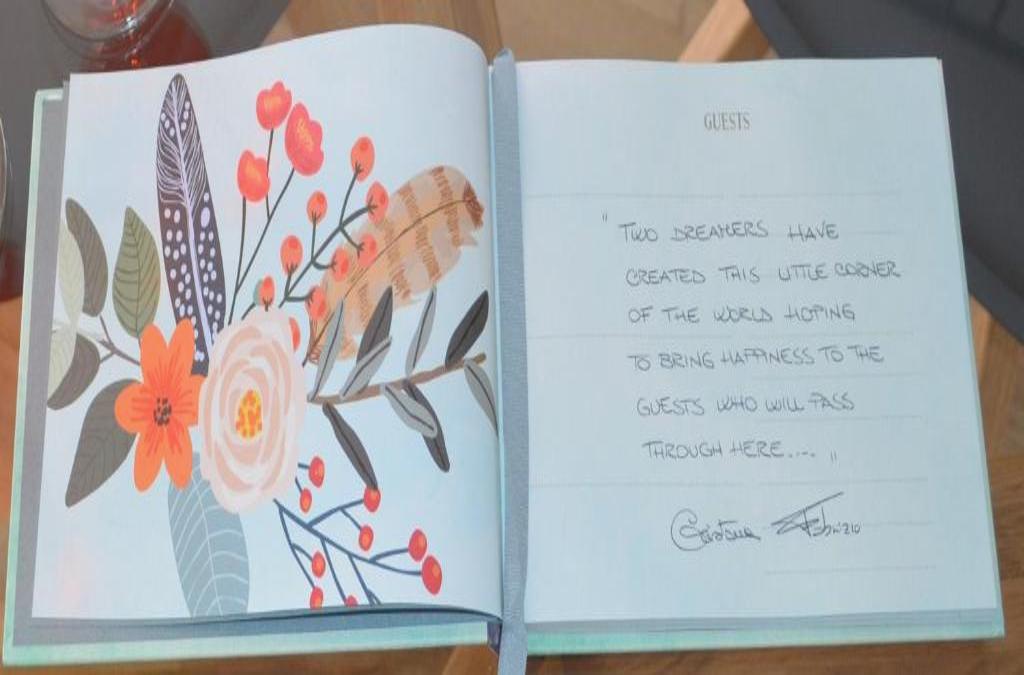 GUESTS
" TWO DREAMERS HAVE
CREATED THIS LITTLE CORNER
OF THE WORLD HOPING
TO BRING HAPPINESS TO THE
GUESTS WHO WILL PASS
THROUGH HERE.... "
Cristina Fabrizio